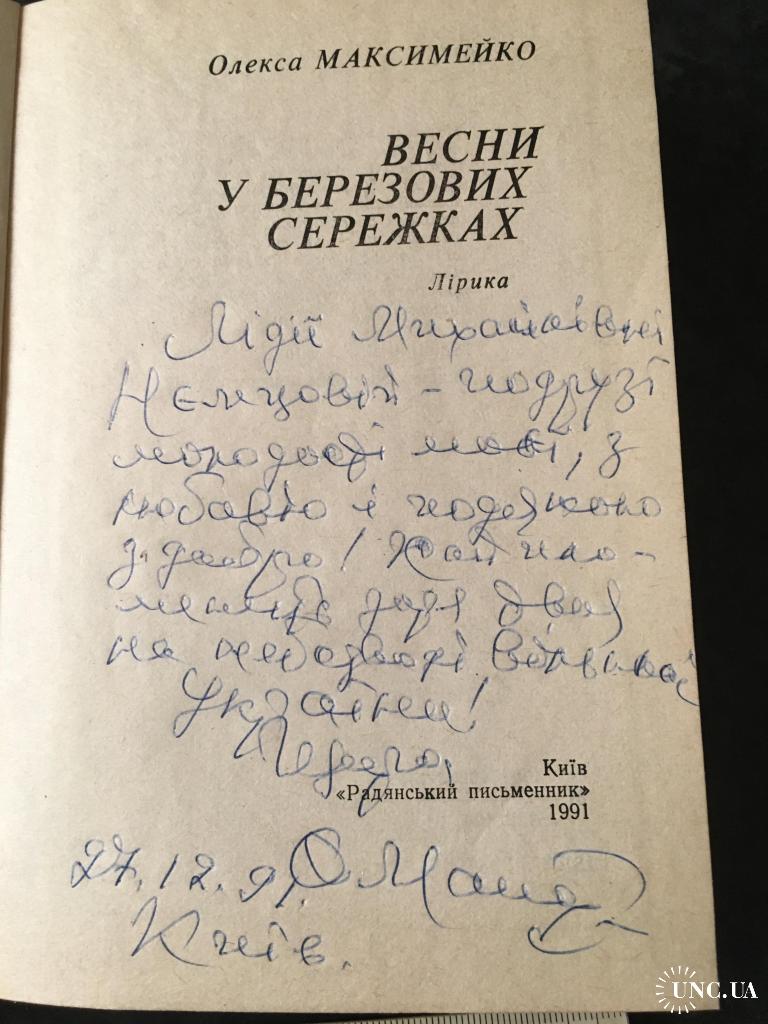 Олекса МАКСИМЕЙКО
ВЕСНИ
У БЕРЕЗОВИХ
СЕРЕЖКАХ
Лірика
Лідії Михайлівні
Нємцовій – подрузі
молодості моєї, з
любов'ю і подякою
з добро! Хай
зоря
на небозводі вільної
України!
Щиро,
Київ
«Радянський письменник»
1991
27.12.91.
Київ.
UNC.UA